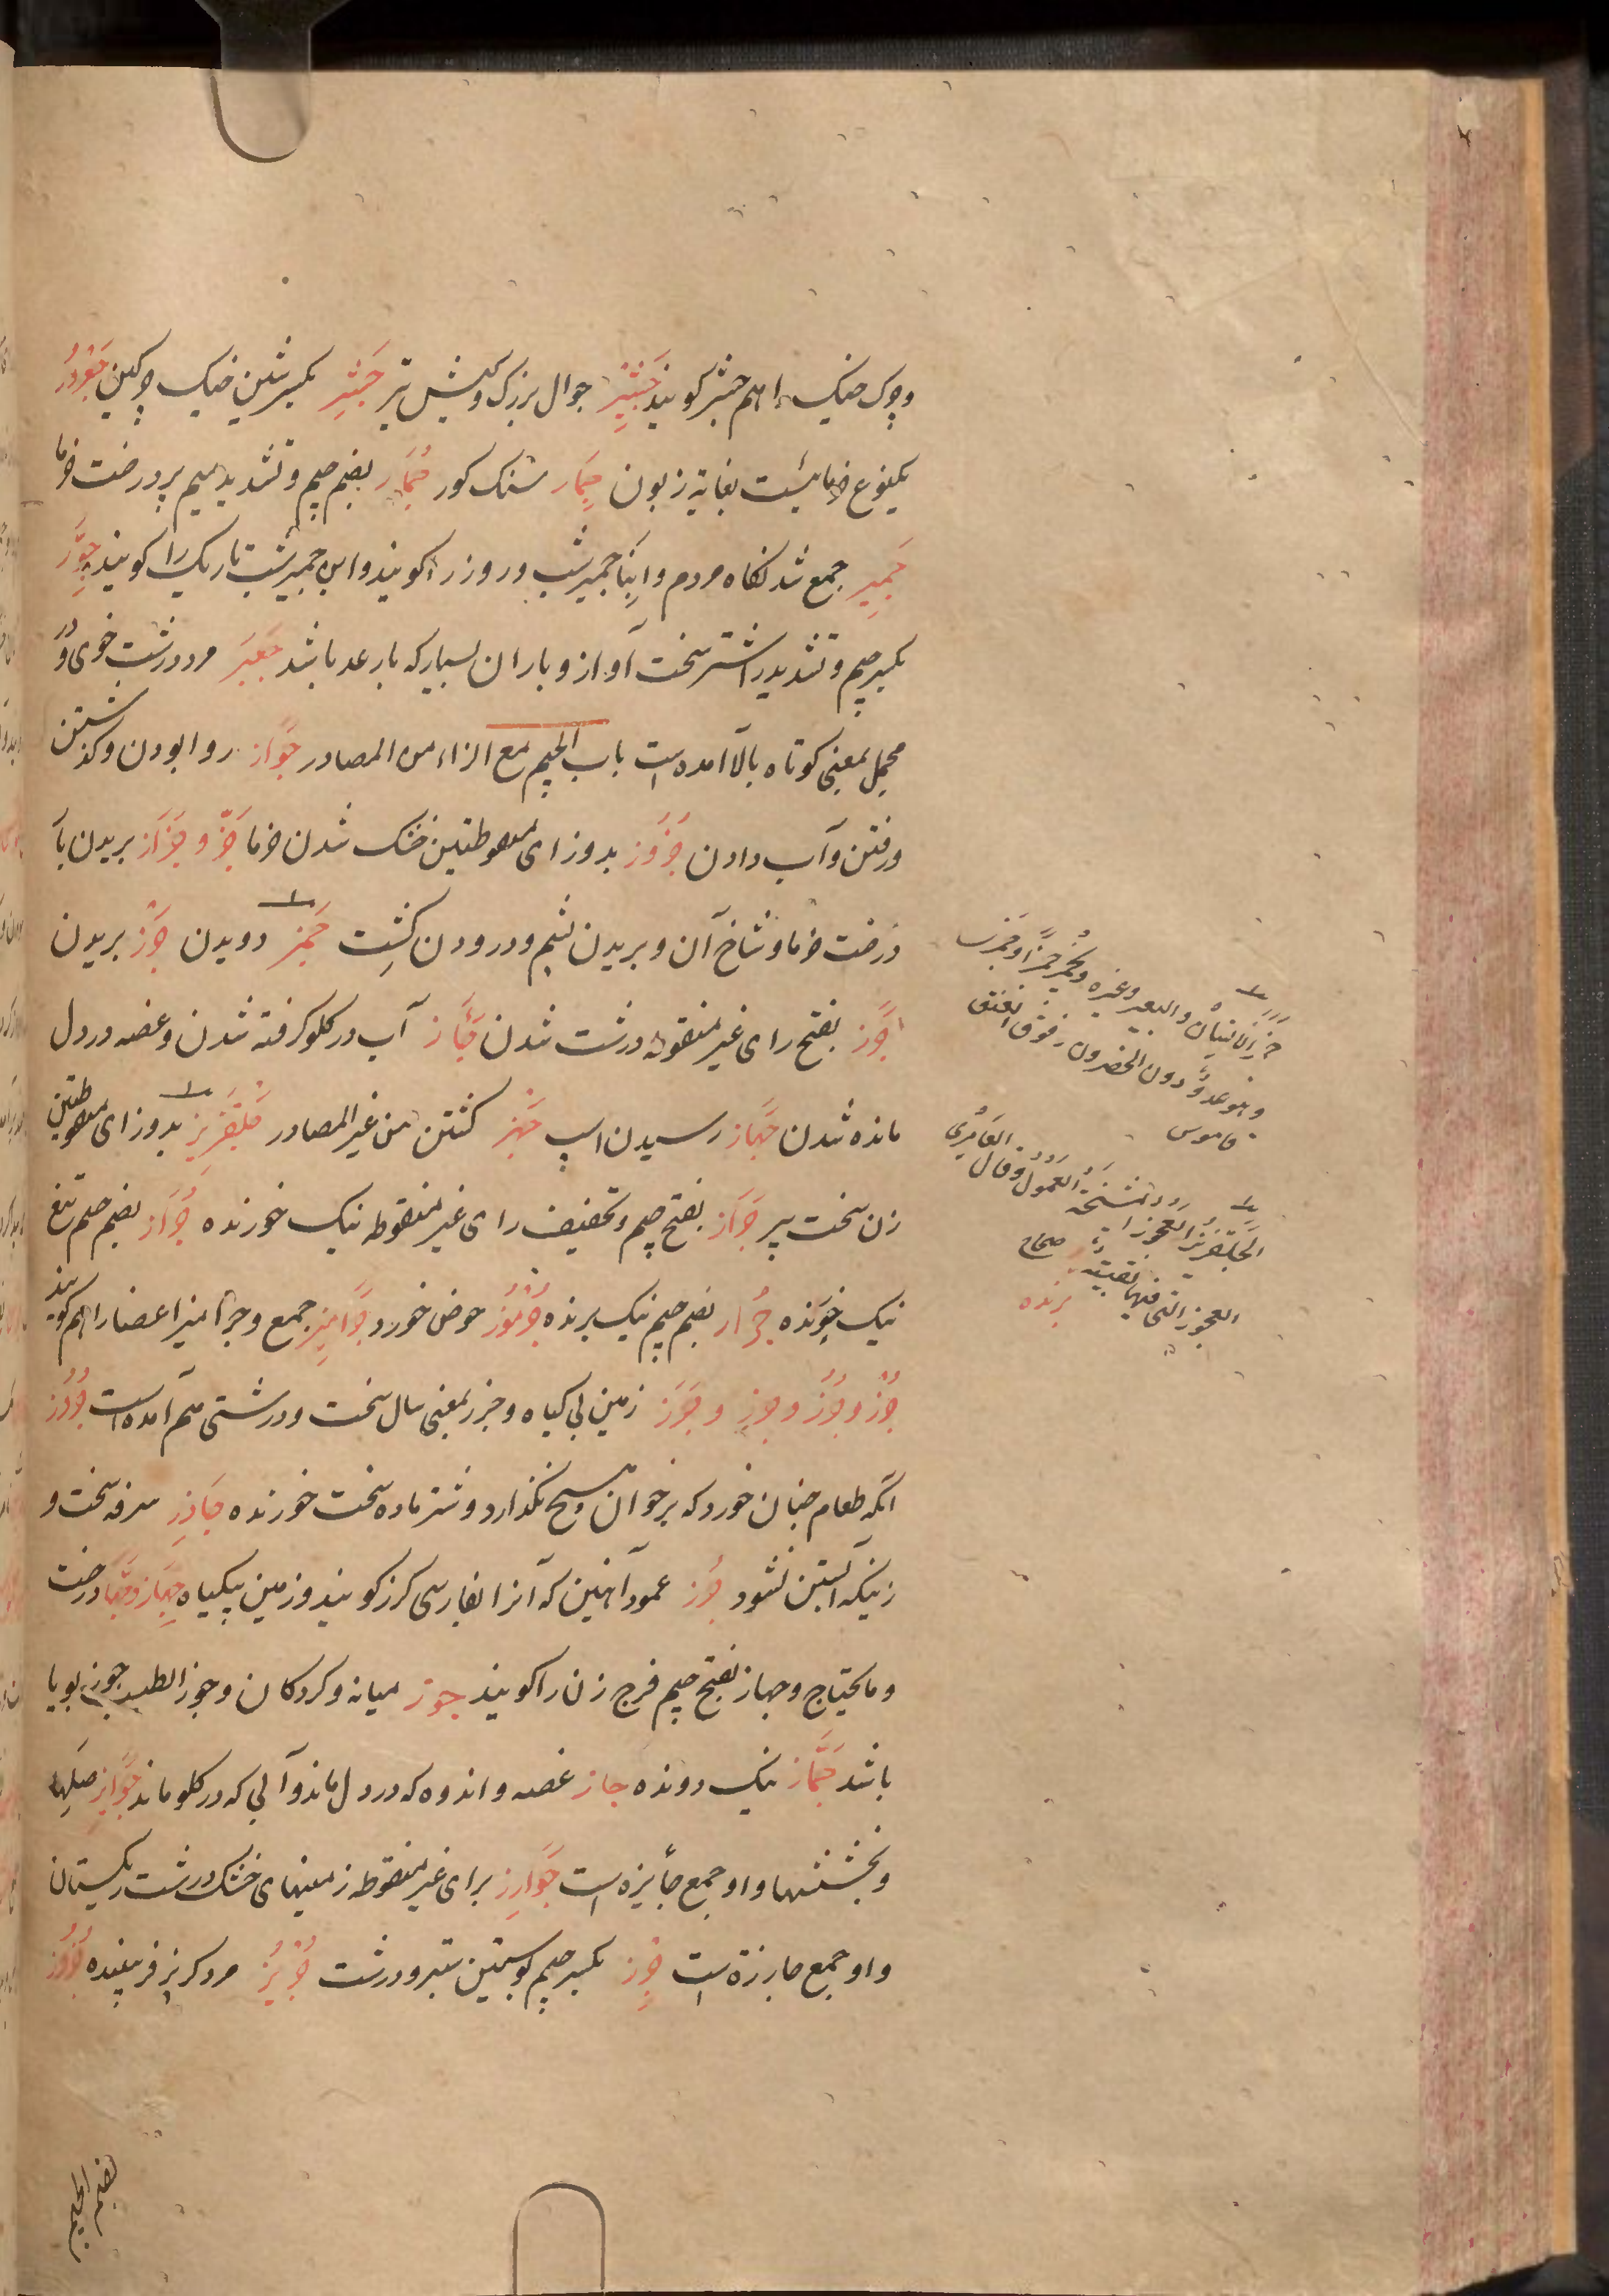 وچرک خیک را هم جشر کویند جَشِیْر جوال بزرک و کیش تیر جَشِر بکسر شین خیک چرکین جُعْرُور
یکنوع خرمائیست بغایة زبون جِمَار سنک کور جُمَّار بضم جیم و تشدید میم پیه درخت خرما
جَمِیر جمع شدنکاه مردم و ابنا جمیر شب و روز را کویند و ابن جمیر شب تاریک را کویند جِوَرّ
بکسر جیم و تشدید را شتر سخت آواز و باران بسیار که با رعد باشد جَعْبَر مرد درشت خوی و در
مجمل بمعنی کوتاه بالا آمده است باب الجیم مع الزاء من المصادر جَوَاز روا بودن و کذشتن
و رفتن و آب دادن جُزُوز بدو زای منقوطتین خشک شدن خرما جَزّ و جَزَاز بریدن بار
درخت خرما و شاخ آن و بریدن پشم و درودن کشت جَمْز دویدن جَرْز بریدن
جَرَز بفتح رای غیر منقوطه درشت شدن جَأَز آب در کلو کرفته شدن و غصه در دل
مانده شدن جَهَاز رسیدن اسپ جَهْز کشتن من غیر المصادر جَلْفَزِیز بدو زای منقوطتین
زن سخت پیر جَرَاز بفتح جیم و تخفیف رای غیر منقوطه نیک خورنده جُرَاز بضم جیم تیغ
نیک جُرَاز بضم جیم نیک برنده جُرْمُوز حوض خورد جَرَامِیز جمع و جرامیز اعضا را هم کویند
جُرْز و جُرُز و جَرْز و جَرَز زمین بی کیاه و جرز بمعنی سال سخت و درشتی هم آمده است جَرُوز
آنکه طعام چنان خورد که بر خوان هیچ نکذارد و شتر ماده سخت خورنده جَارِز سرفه سخت و
زنیکه آبستن نشود جُرْز عمود آهنین که آنرا بفارسی کرز کویند و زمین بیکیاه جِهَاز و جَهَاز رخت
و مایحتاج و جهاز بفتح جیم فرج زن را کویند جوز میانه و کردکان و جوز الطیب جوز بویا
باشد جَمَّاز نیک دونده جاز غصه و اندوه که در دل ماند و آبی که در کلو ماند جَوَایِز صلها
و بخششها و او جمع جایزه است جَوَارِز برای غیر منقوطه زمینهای خشک درشت ریکستان
و او جمع جارزة است جِرْز بکسر جیم پوستین ستبر و درشت جُرْبُز مرد کربز فریبنده جُرُز
جمز الانسان والبعیر وغیره یجمز جمزا وجمزی
وهو عدو دون الحضر وفوق العنق
قاموس
الجلفزیز العجوز المتشنجة العمول وقال العامری
العجوز التی فیها بقیة صحاح
برنده
بضم الجیم